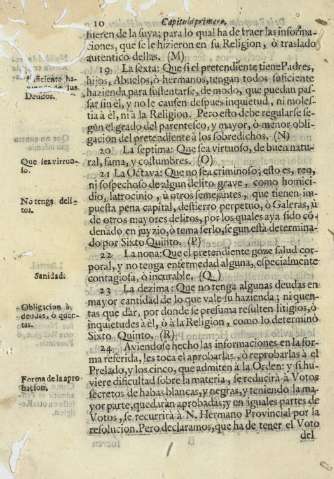 10 Capitulo primero.
fueren de la suya; para lo qual ha de traer las informa-
ciones, que se le hizieron en su Religion, ò traslado
autentico dellas. (M)
19 La sexta: Que si el pretendiente tiene Padres,
hijos, Abuelos, ò hermanos, tengan todos suficiente
hazienda para sustentarse, de modo, que puedan pas-
sar sin èl, y no le causen despues inquietud, ni moles-
tia à èl, ni à la Religion. Pero esto debe regularse se-
gun el grado del parentesco, y mayor, ò menor obli-
gacion del pretendiente à los sobredichos. (N)
20 La septima: Que sea virtuoso, de buen natu-
ral, fama, y costumbres. (O)
21 La Octava: Que no sea criminoso; esto es, reo,
ni sospechoso de algun delito grave, como homici-
dio, latrocinio, ù otros semejantes, que tienen im-
puesta pena capital, destierro perpetuo, ò Galeras, ù
de otros mayores delitos, por los quales aya sido co-
denado en juyzio, ò tema serlo, segun està determina-
do por Sixto Quinto. (P)
22 La nona: Que el pretendiente goze salud cor-
poral, y no tenga enfermedad alguna, especialmente
contagiosa, ò incurable. (Q)
23 La dezima: Que no tenga algunas deudas en
mayor cantidad de lo que vale su hazienda; ni quen-
tas que dàr, por donde se presuma resulten litigios, ò
inquietudes à èl, ò à la Religion, como lo determinò
Sixto Quinto. (R)
24 Aviendose hecho las informaciones en la for-
ma referida, les toca el aprobarlas, ò reprobarlas à el
Prelado, y los cinco, que admiten à la Orden: y si hu-
viere dificultad sobre la materia, se reducirà à Votos
secretos de habas blancas, y negras, y teniendo la ma-
yor parte, quedaràn aprobadas; y en iguales partes de
Votos, se recurrirà à N. Hermano Provincial por la
resolucion. Pero declaramos, que ha de tener el Voto
del
Suficiente ha-
Deudos.
Que sea virtuo-
so.
No tenga deli-
tos.
Sanidad.
Obligacion à
deudas, ò quen-
tas.
Forma de la apro
bacion.